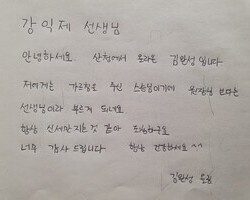 강익제 선생님
안녕하세요. 산청에서 올라온 김완성입니다.
저에게는 가르침을 주신 스승님이기에 원장님 보다는
선생님이라 부르게 되네요
항상 신세만 지는것 같아 죄송하구요
너무 감사드립니다 항상 건강하세요^^
김완성 드림